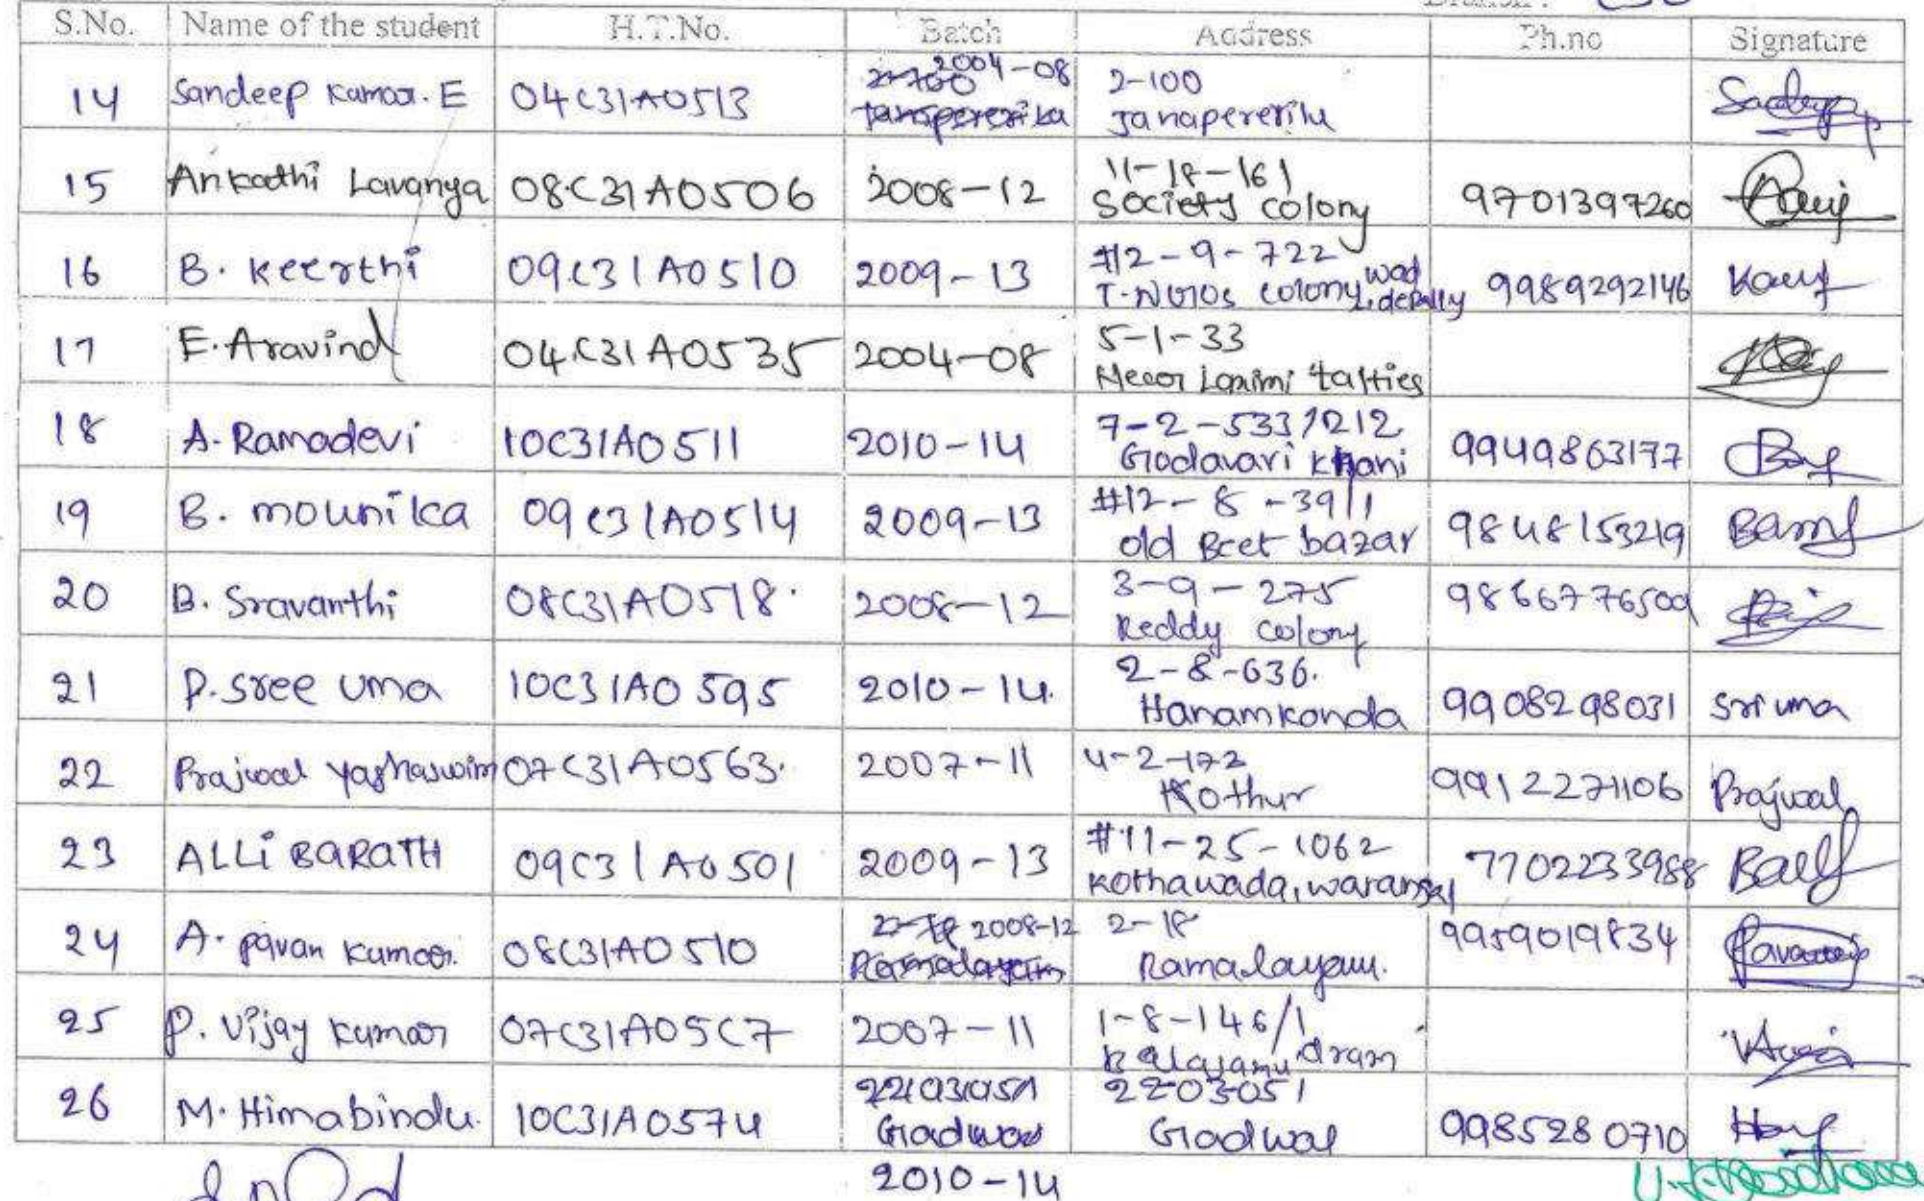 S.No. Name of the student H.T.No. Batch Address Ph.no Signature
14 Sandeep Kumar. E 04C31A0513 2004-08 2-100
Janapererilu
15 Ankathi Lavanya 08C31A0506 2008-12 11-18-161
Society colony 9701397260
16 B. Keerthi 09C31A0510 2009-13 #12-9-722
T.NGIOs colony, wad
depally 9989292146
17 E. Aravind 04C31A0535 2004-08 5-1-33
18 A. Ramadevi 10C31A0511 2010-14 7-2-533/212
Godavari Khani 9949863177
19 B. mounika 09C31A0514 2009-13 #12-8-39/1
old Beet bazar 9848153219
20 B. Sravanthi 08C31A0518. 2008-12 3-9-275
Reddy colony 9866776509
21 P. Sree uma 10C31A0595 2010-14. 2-8-636.
Hanamkonda 9908298031 Sri uma
22 Prajwal yashaswim 07C31A0563. 2007-11 4-2-172
Kothur 9912271106 Prajwal
23 ALLI BARATH 09C31A0501 2009-13 #11-25-1062
Kothawada, warangal 7702233988
24 A. pavan kumar. 08C31A0510 2008-12 2-18
Ramalayam. 9959019834
25 P. Vijay kumar 07C31A05C7 2007-11 1-8-146/1
26 M. Himabindu. 10C31A0574 2203051
Gadwal 2203051
Gadwal 9985280710
2010-14